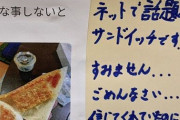 な事しないと
ネットで話題
サンドイッチです
すみません...
ごめんなさい...
信じてくれていたのに